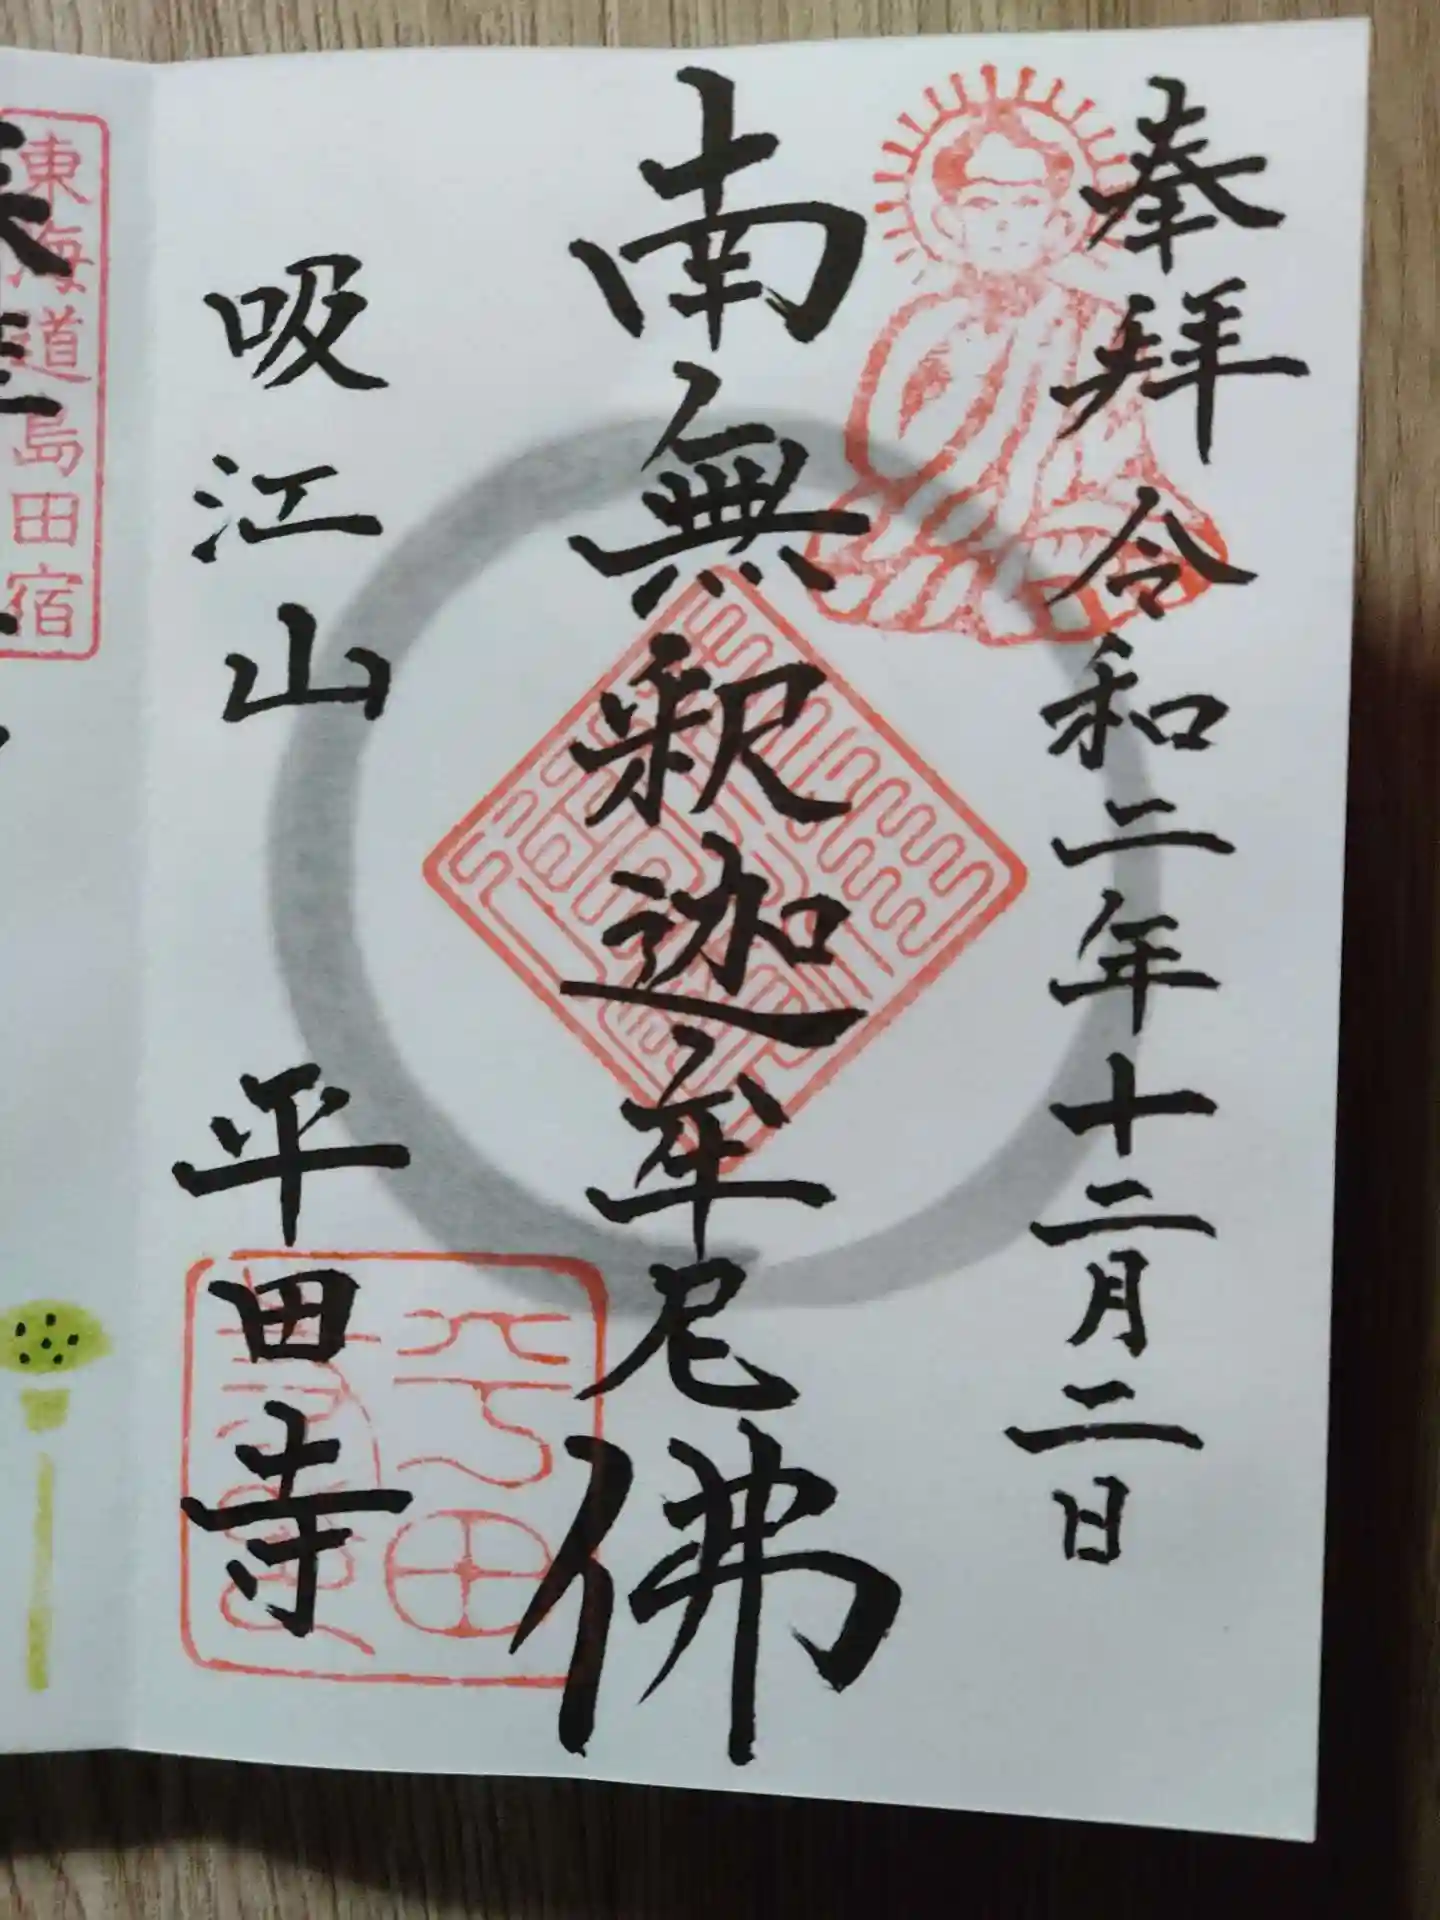 奉拝 令和二年十二月二日
南無釈迦牟尼佛
吸江山 平田寺
東海道島田宿